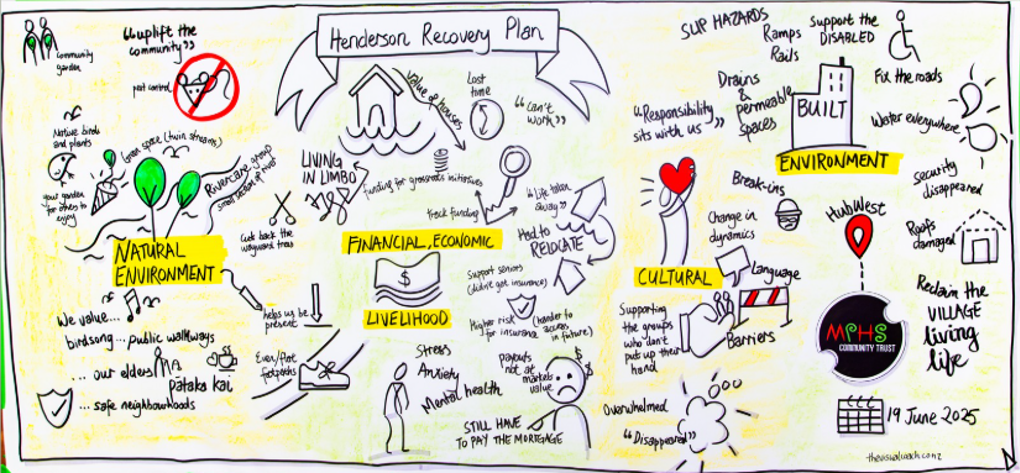 Henderson Recovery Plan
community
garden
"uplift the
community"
pest control
Native birds
and plants
Green space (twin streams)
your garden
for others to
enjoy
Rivercare group
small section of river
Cut back the
wayward trees
NATURAL
ENVIRONMENT
We value...
birdsong... public walkways
... our elders
pataka kai
... safe neighbourhoods
helps us be
present
Even/flat
footpaths
value of houses
Lost
time
"can't
work"
LIVING
IN LIMBO
funding for grassroots initiatives
track funding
"Life taken
away"
Had to
RELOCATE
FINANCIAL, ECONOMIC
$
LIVELIHOOD
Support seniors
(didn't get insurance)
Higher risk
for insurance
(harder to
access
in future)
Stress
Anxiety
Mental health
Payouts
not at
markets
value
$
$
STILL HAVE
TO PAY THE MORTGAGE
SLIP HAZARDS
Ramps
Rails
Support the
DISABLED
Fix the roads
Drains
&
permeable
spaces
"Responsibility
sits with us"
BUILT
ENVIRONMENT
Water everywhere
security
disappeared
Roofs
damaged
Break-ins
Change in
dynamics
CULTURAL
Language
Barriers
Supporting
the groups
who don't
put up their
hand
Overwhelmed
"Disappeared"
HubWest
MPHS
COMMUNITY TRUST
Reclaim the
VILLAGE
living
life
19 June 2025
thevisualcoach.co.nz